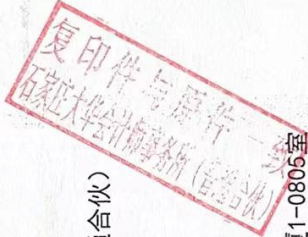 复印件与原件一致
石家庄大华会计师事务所(普通合伙)
合伙)
1-0805室